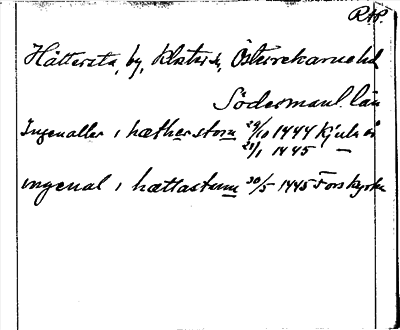 RAP.
Hättersta, by, Klosters, Österrekarne hd
Södermanl. län
Ingenaller i hætherstom 29/10 1444 Kjula å
28/1 1445 —
ingenal i hættastum 30/5 1445 Fors kyrka